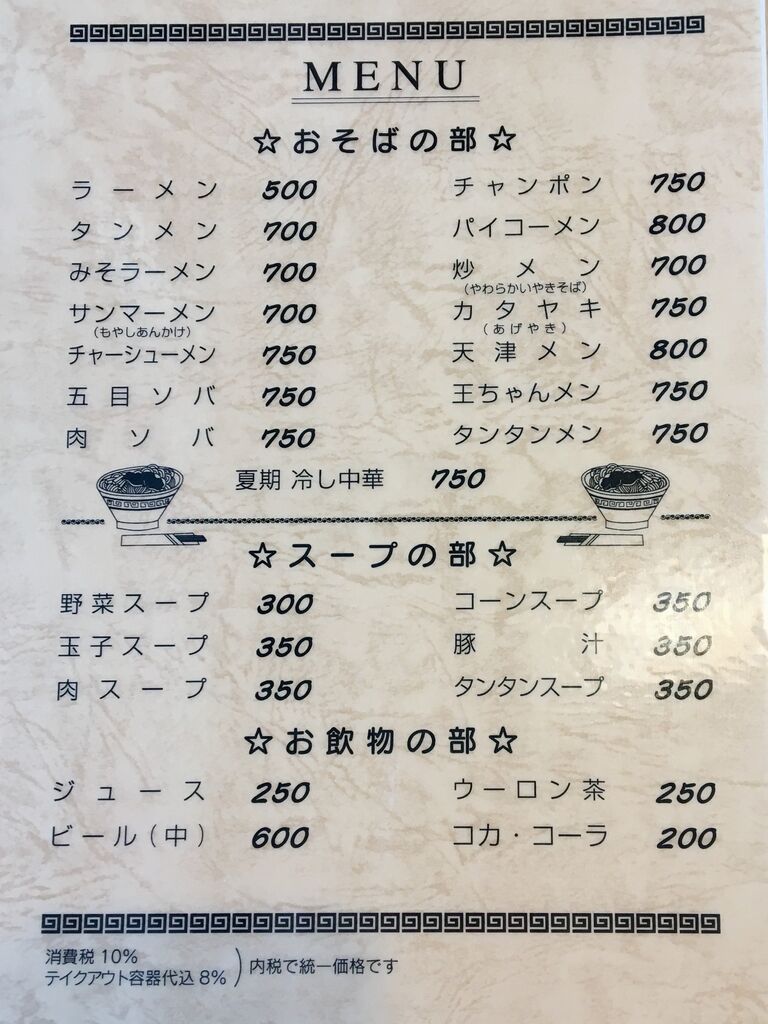 MENU
☆おそばの部☆
ラーメン 500
タンメン 700
みそラーメン 700
サンマーメン 700
(もやしあんかけ)
チャーシューメン 750
五目ソバ 750
肉ソバ 750
チャンポン 750
パイコーメン 800
炒メン 700
(やわらかいやきそば)
カタヤキ 750
(あげやき)
天津メン 800
王ちゃんメン 750
タンタンメン 750
夏期 冷し中華 750
☆スープの部☆
野菜スープ 300
玉子スープ 350
肉スープ 350
コーンスープ 350
豚汁 350
タンタンスープ 350
☆お飲物の部☆
ジュース 250
ビール(中) 600
ウーロン茶 250
コカ・コーラ 200
消費税 10%
テイクアウト容器代込 8%
) 内税で統一価格です